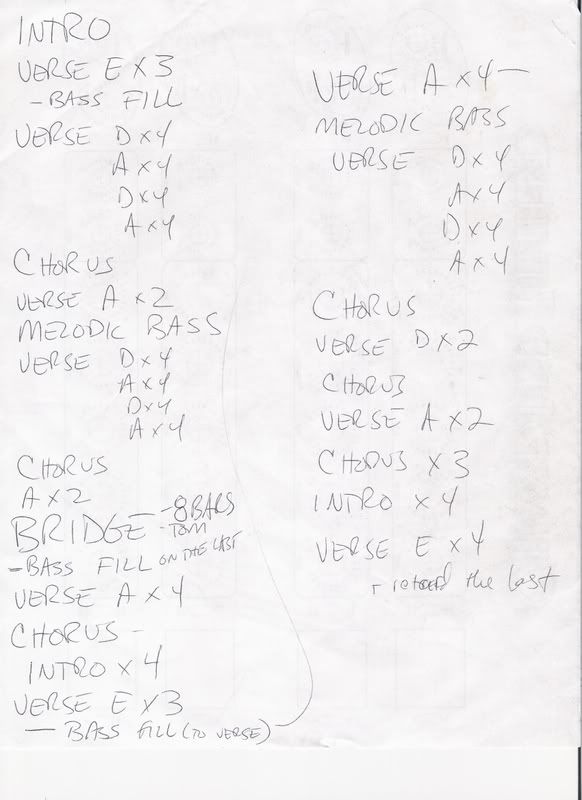 INTRO
VERSE E x 3
- BASS FILL
VERSE D x 4
A x 4
D x 4
A x 4
CHORUS
VERSE A x 2
MELODIC BASS
VERSE D x 4
A x 4
D x 4
A x 4
CHORUS
A x 2
BRIDGE - 8 BARS
- TOM
- BASS FILL ON THE LAST
VERSE A x 4
CHORUS -
INTRO x 4
VERSE E x 3
- BASS FILL (TO VERSE)
VERSE A x 4 -
MELODIC BASS
VERSE D x 4
A x 4
D x 4
A x 4
CHORUS
VERSE D x 2
CHORUS
VERSE A x 2
CHORUS x 3
INTRO x 4
VERSE E x 4
- retard the last